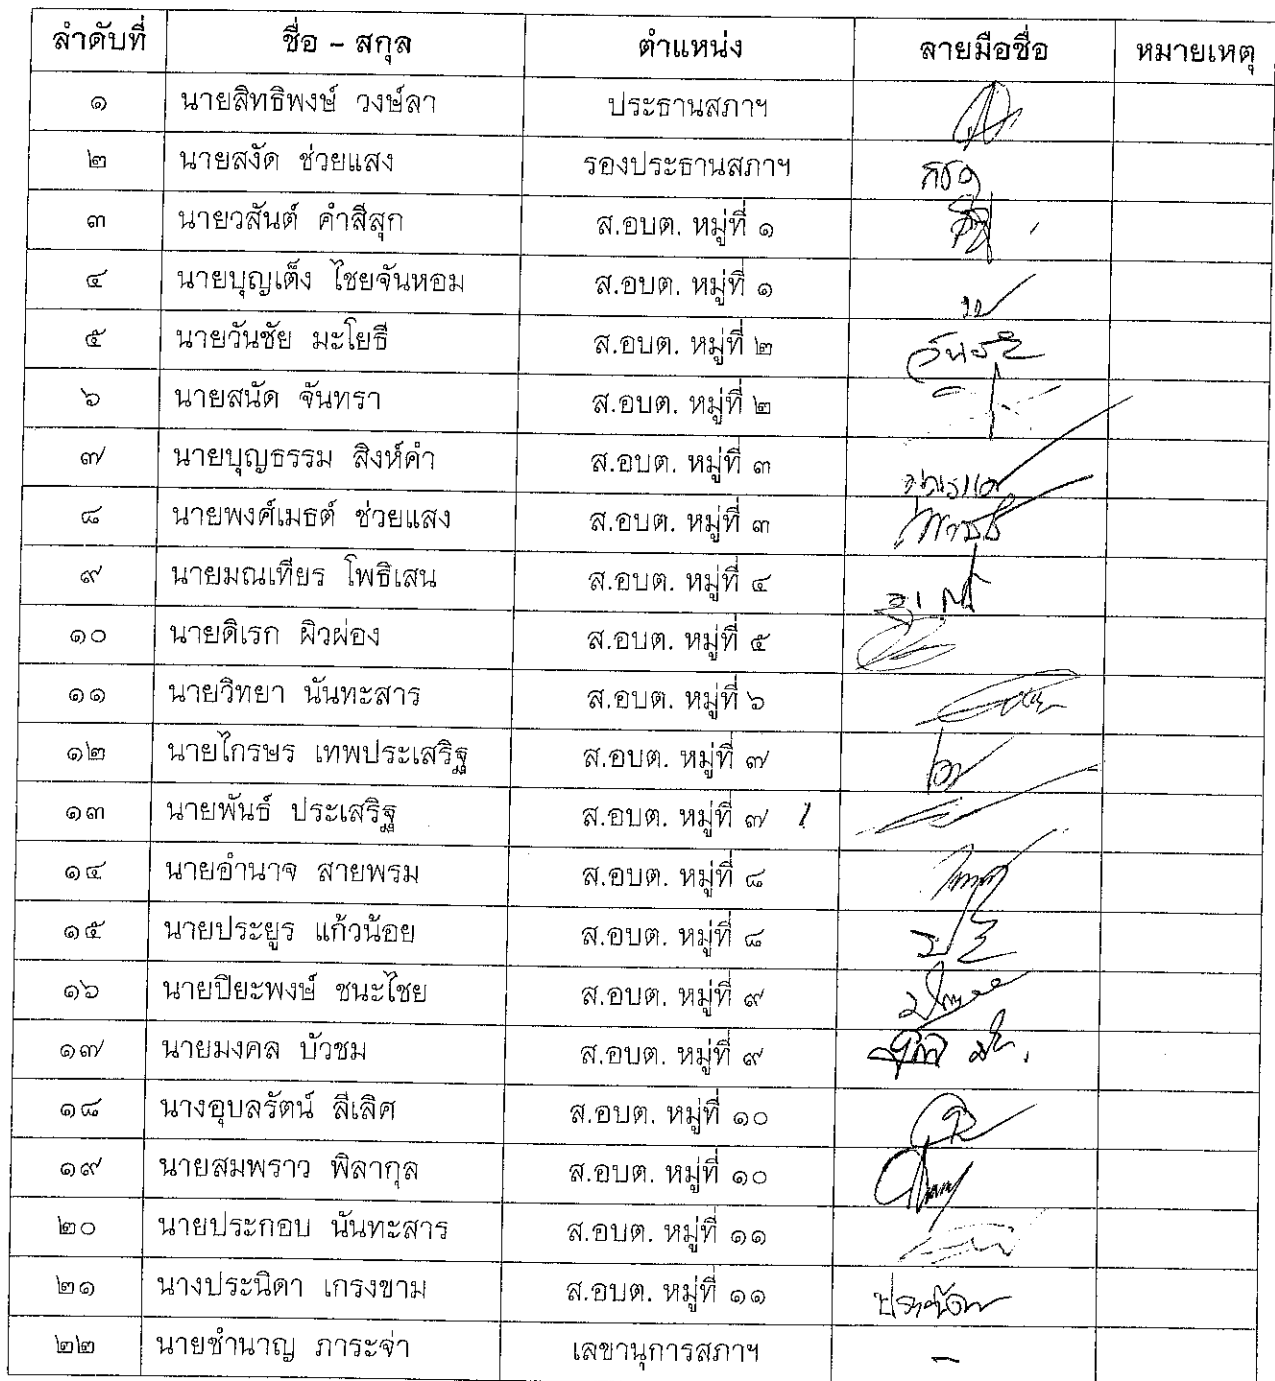 ลำดับที่ ชื่อ – สกุล ตำแหน่ง ลายมือชื่อ หมายเหตุ
๑ นายสิทธิพงษ์ วงษ์ลา ประธานสภาฯ
๒ นายสงัด ช่วยแสง รองประธานสภาฯ
๓ นายวสันต์ คำสีสุก ส.อบต. หมู่ที่ ๑
๔ นายบุญเต็ง ไชยจันหอม ส.อบต. หมู่ที่ ๑
๕ นายวันชัย มะโยธี ส.อบต. หมู่ที่ ๒
๖ นายสนัด จันทรา ส.อบต. หมู่ที่ ๒
๗ นายบุญธรรม สิงห์คำ ส.อบต. หมู่ที่ ๓
๘ นายพงศ์เมธต์ ช่วยแสง ส.อบต. หมู่ที่ ๓
๙ นายมณเทียร โพธิเสน ส.อบต. หมู่ที่ ๔
๑๐ นายดิเรก ผิวผ่อง ส.อบต. หมู่ที่ ๕
๑๑ นายวิทยา นันทะสาร ส.อบต. หมู่ที่ ๖
๑๒ นายไกรษร เทพประเสริฐ ส.อบต. หมู่ที่ ๗
๑๓ นายพันธ์ ประเสริฐ ส.อบต. หมู่ที่ ๗
๑๔ นายอำนาจ สายพรม ส.อบต. หมู่ที่ ๘
๑๕ นายประยูร แก้วน้อย ส.อบต. หมู่ที่ ๘
๑๖ นายปิยะพงษ์ ชนะไชย ส.อบต. หมู่ที่ ๙
๑๗ นายมงคล บัวชม ส.อบต. หมู่ที่ ๙
๑๘ นางอุบลรัตน์ ลีเลิศ ส.อบต. หมู่ที่ ๑๐
๑๙ นายสมพราว พิลากุล ส.อบต. หมู่ที่ ๑๐
๒๐ นายประกอบ นันทะสาร ส.อบต. หมู่ที่ ๑๑
๒๑ นางประนิดา เกรงขาม ส.อบต. หมู่ที่ ๑๑
๒๒ นายชำนาญ ภาระจ่า เลขานุการสภาฯ –